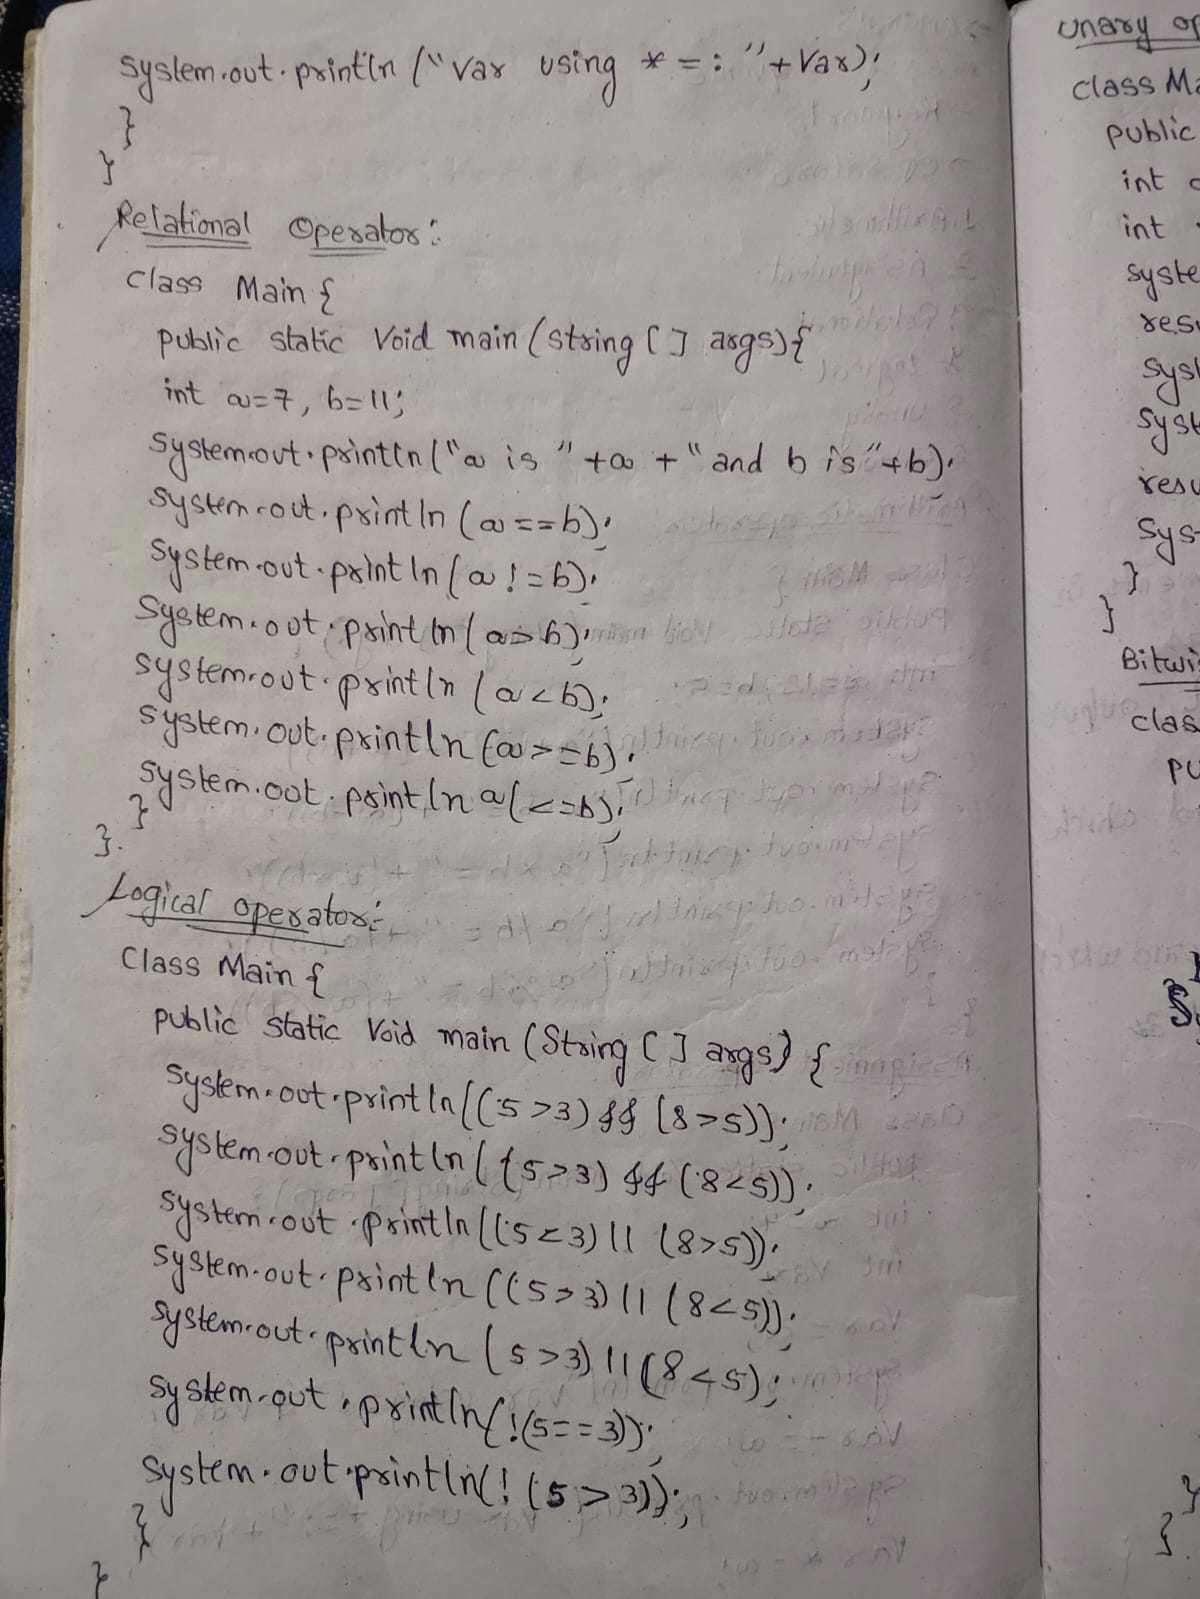 System.out.println ("Var using * = : "+Var);
}
}
Relational Operator:
Class Main {
public static Void main (String [ ] args){
int a=7, b=11;
System.out.println("a is "+a + "and b is"+b);
System.out.println (a==b);
System.out.println (a !=b);
System.out.println (a>b);
System.out.println (a<b);
System.out.println (a>=b);
System.out.println a(<=b);
}
}.
Logical operator:
Class Main {
public static Void main (String [ ] args) {
System.out.println((5>3) && (8>5));
System.out.println ((5>3) && (8<5));
System.out.println ((5<3) || (8>5));
System.out.println ((5>3) || (8<5));
System.out.println (5>3) || (8<5);
System.out.println(!(5==3));
System.out.println(! (5>3));
}
}
unary op
class Ma
public
int
int
syste
resu
syst
syst
resu
Sys
}
}
Bitwis
clas
pu
}
}